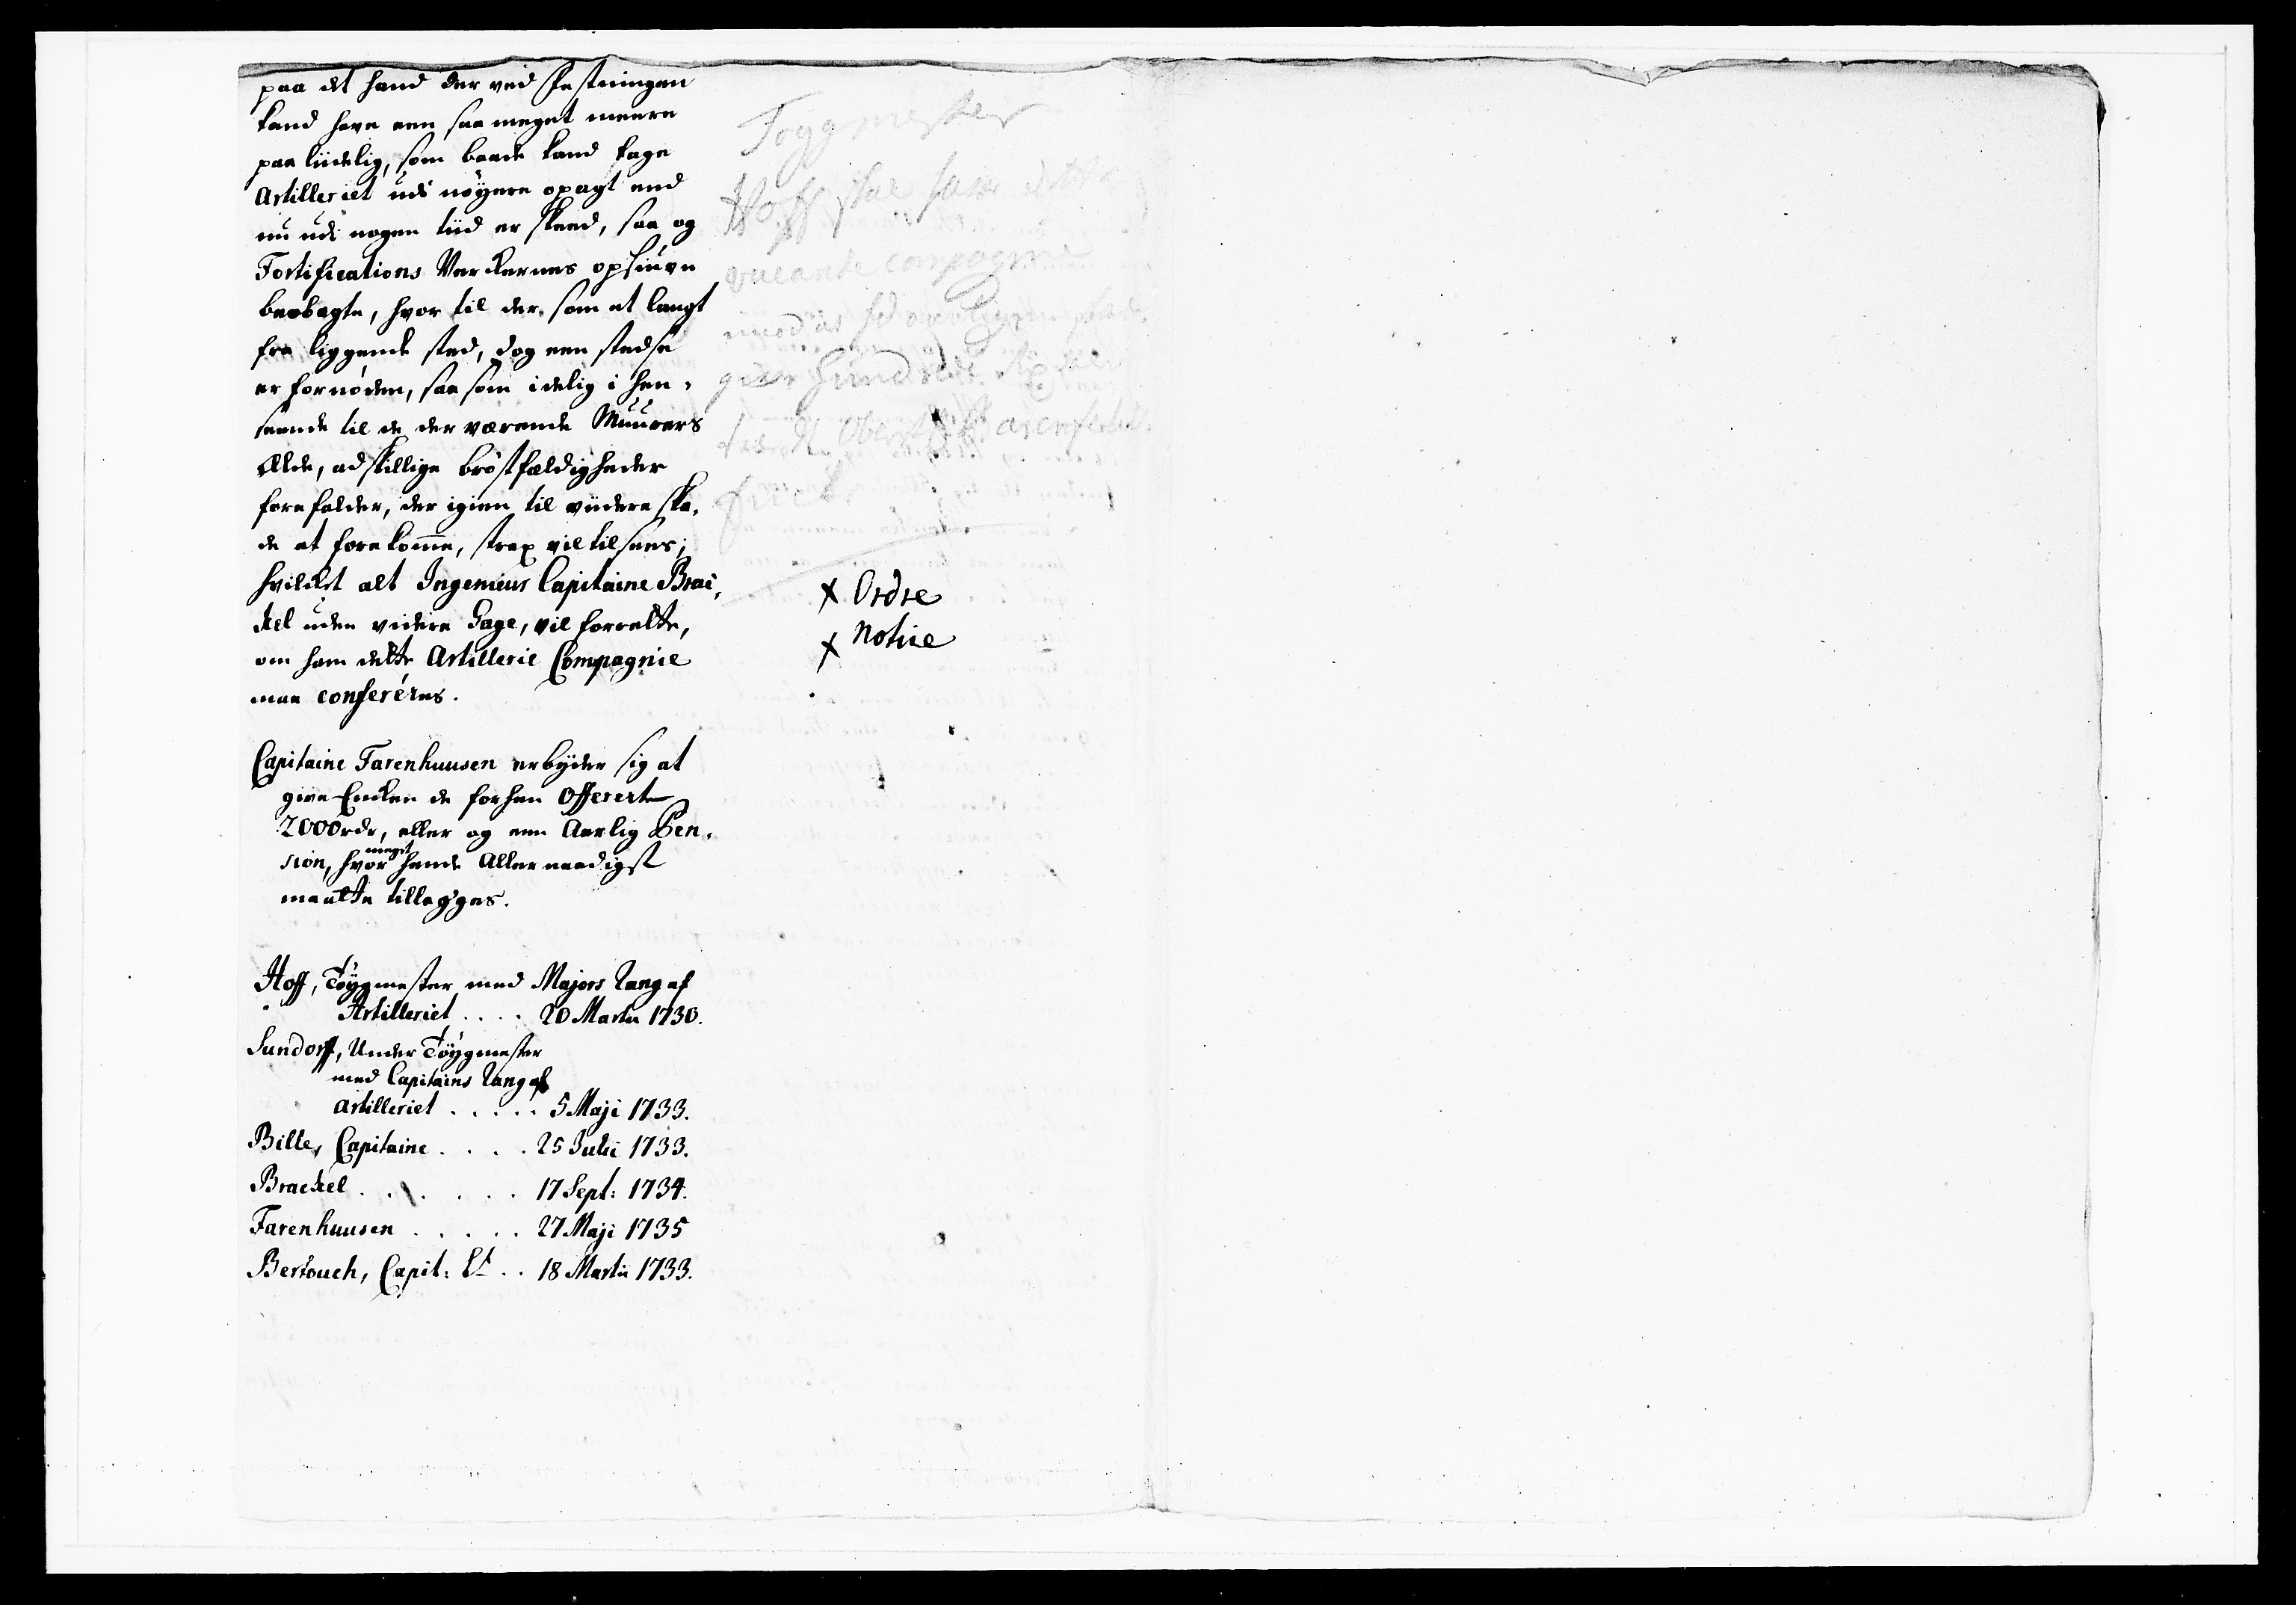 paa det hand der ved Festningen
kand have een saa meget meere
paalidelig, som baade kand tage
Artilleriet udi nøyere opagt end
nu udi nogen tiid er skeed, saa og
Fortifications Verckernes opsiuvn
beobagte, hvor til der, som et langt
fra liggende sted, dog een stedse
er fornøden, saa som idelig i hen-
seende til de der værende Muurers
Ælde, adskillige brøstfældigheder
forefalder, der igien til viidere ska-
de at forekomme, strax vil tilsees;
hvilcket alt Ingenieur Capitaine Brac-
kel uden videre Gage, vil forrette,
om ham dette Artillerie Compagnie
maa conferéres.
Capitaine Farenhuusen erbyder sig at
give Encken de forhen Offererte
2000rdr, eller og een Aarlig Pen-
sion, hvor meget hende Allernaadigst
maatte tillegges.
Hoff, Tøygmester med Majors Rang af
Artilleriet .... 20 Martii 1730.
Sundorff, Under Tøygmester
med Capitains Rang af
Artilleriet ..... 5 Maji 1733.
Bille, Capitaine .... 25 Julii 1733.
Brackel ....... 17 Sept: 1734.
Farenhuusen ..... 27 Maji 1735
Bertouch, Capit: Lt .. 18 Martii 1733.
Toygmester
Hoff skal have dette
vacante compagnie
imod at
giver hundrede Rixdaler
til
x Ordre
x Notice